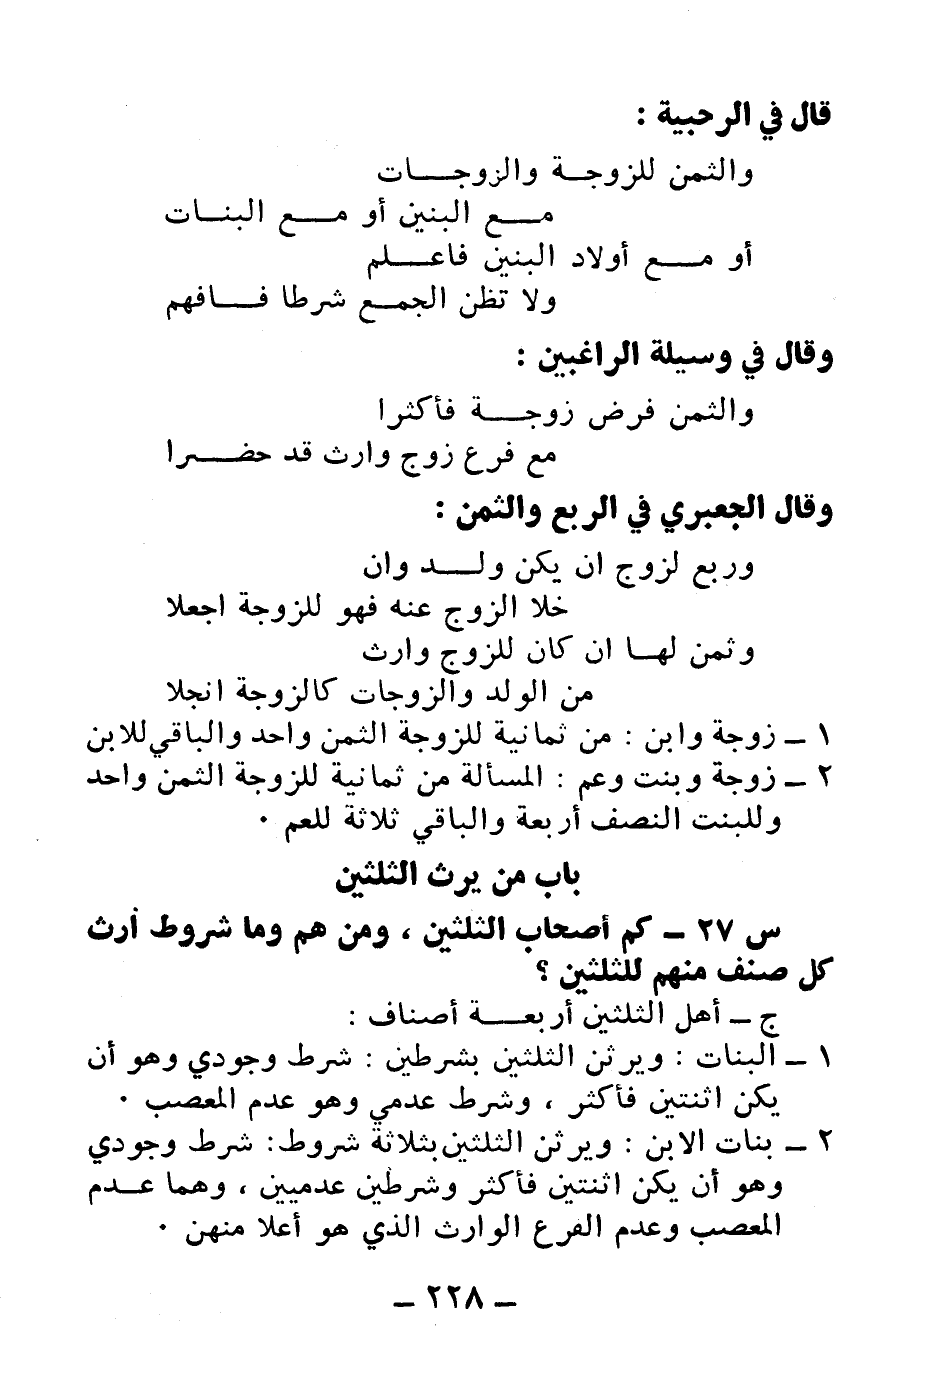 قال في الرحبية :
والثمن للزوجة والزوجات
مع البنين أو مع البنات
أو مع أولاد البنين فاعلم
ولا تظن الجمع شرطا فافهم
وقال في وسيلة الراغبين :
والثمن فرض زوجة فأكثرا
مع فرع زوج وارث قد حضرا
وقال الجعبري في الربع والثمن :
وربع لزوج ان يكن ولد وان
خلا الزوج عنه فهو للزوجة اجعلا
وثمن لها ان كان للزوج وارث
من الولد والزوجات كالزوجة انجلا
١ ـ زوجة وابن : من ثمانية للزوجة الثمن واحد والباقي للابن
٢ ـ زوجة وبنت وعم : المسألة من ثمانية للزوجة الثمن واحد
وللبنت النصف أربعة والباقي ثلاثة للعم ٠
باب من يرث الثلثين
س ٢٧ ـ كم أصحاب الثلثين ، ومن هم وما شروط أرث
كل صنف منهم للثلثين ؟
ج ـ أهل الثلثين أربعة أصناف :
١ ـ البنات : ويرثن الثلثين بشرطين : شرط وجودي وهو أن
يكن اثنتين فأكثر ، وشرط عدمي وهو عدم المعصب ٠
٢ ـ بنات الابن : ويرثن الثلثين بثلاثة شروط: شرط وجودي
وهو أن يكن اثنتين فأكثر وشرطين عدميين ، وهما عدم
المعصب وعدم الفرع الوارث الذي هو أعلا منهن ٠
ـ ٢٢٨ ـ